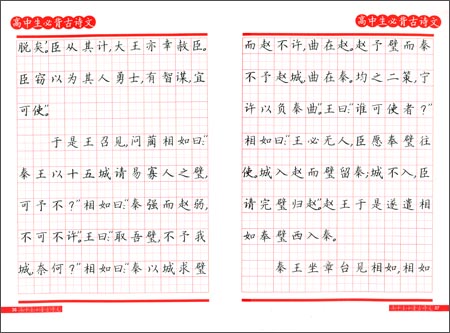 高中生必背古诗文
脱矣。臣从其计,大王亦幸赦臣。
臣窃以为其人勇士,有智谋,宜
可使。”
于是王召见,问蔺相如曰:“
秦王以十五城请易寡人之璧,
可予不?”相如曰:“秦强而赵弱,
不可不许。”王曰:“取吾璧,不予我
城,奈何?”相如曰:“秦以城求璧
高中生必背古诗文
而赵不许,曲在赵。赵予璧而秦
不予赵城,曲在秦。均之二策,宁
许以负秦曲。”王曰:“谁可使者?”
相如曰:“王必无人,臣愿奉璧往
使。城入赵而璧留秦;城不入,臣
请完璧归赵。”赵王于是遂遣相
如奉璧西入秦。
秦王坐章台见相如,相如